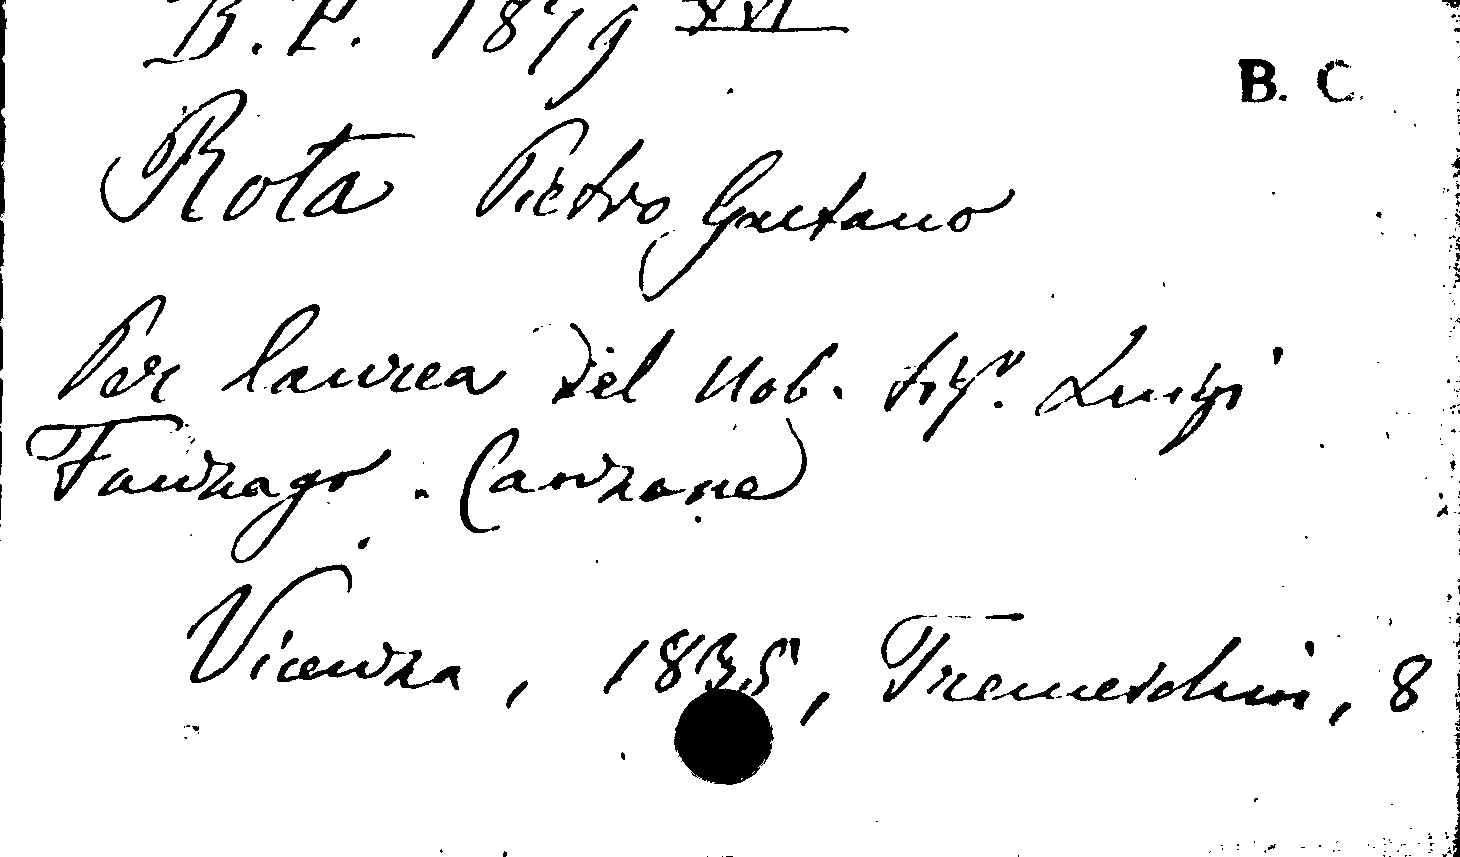 B. P. 1879 XVI
B. C
Rota Pietro Gaetano
Per laurea del Nob. Sigr. Luigi
Fanzago. Canzone
Vicenza, 1835, Tremeschini, 8